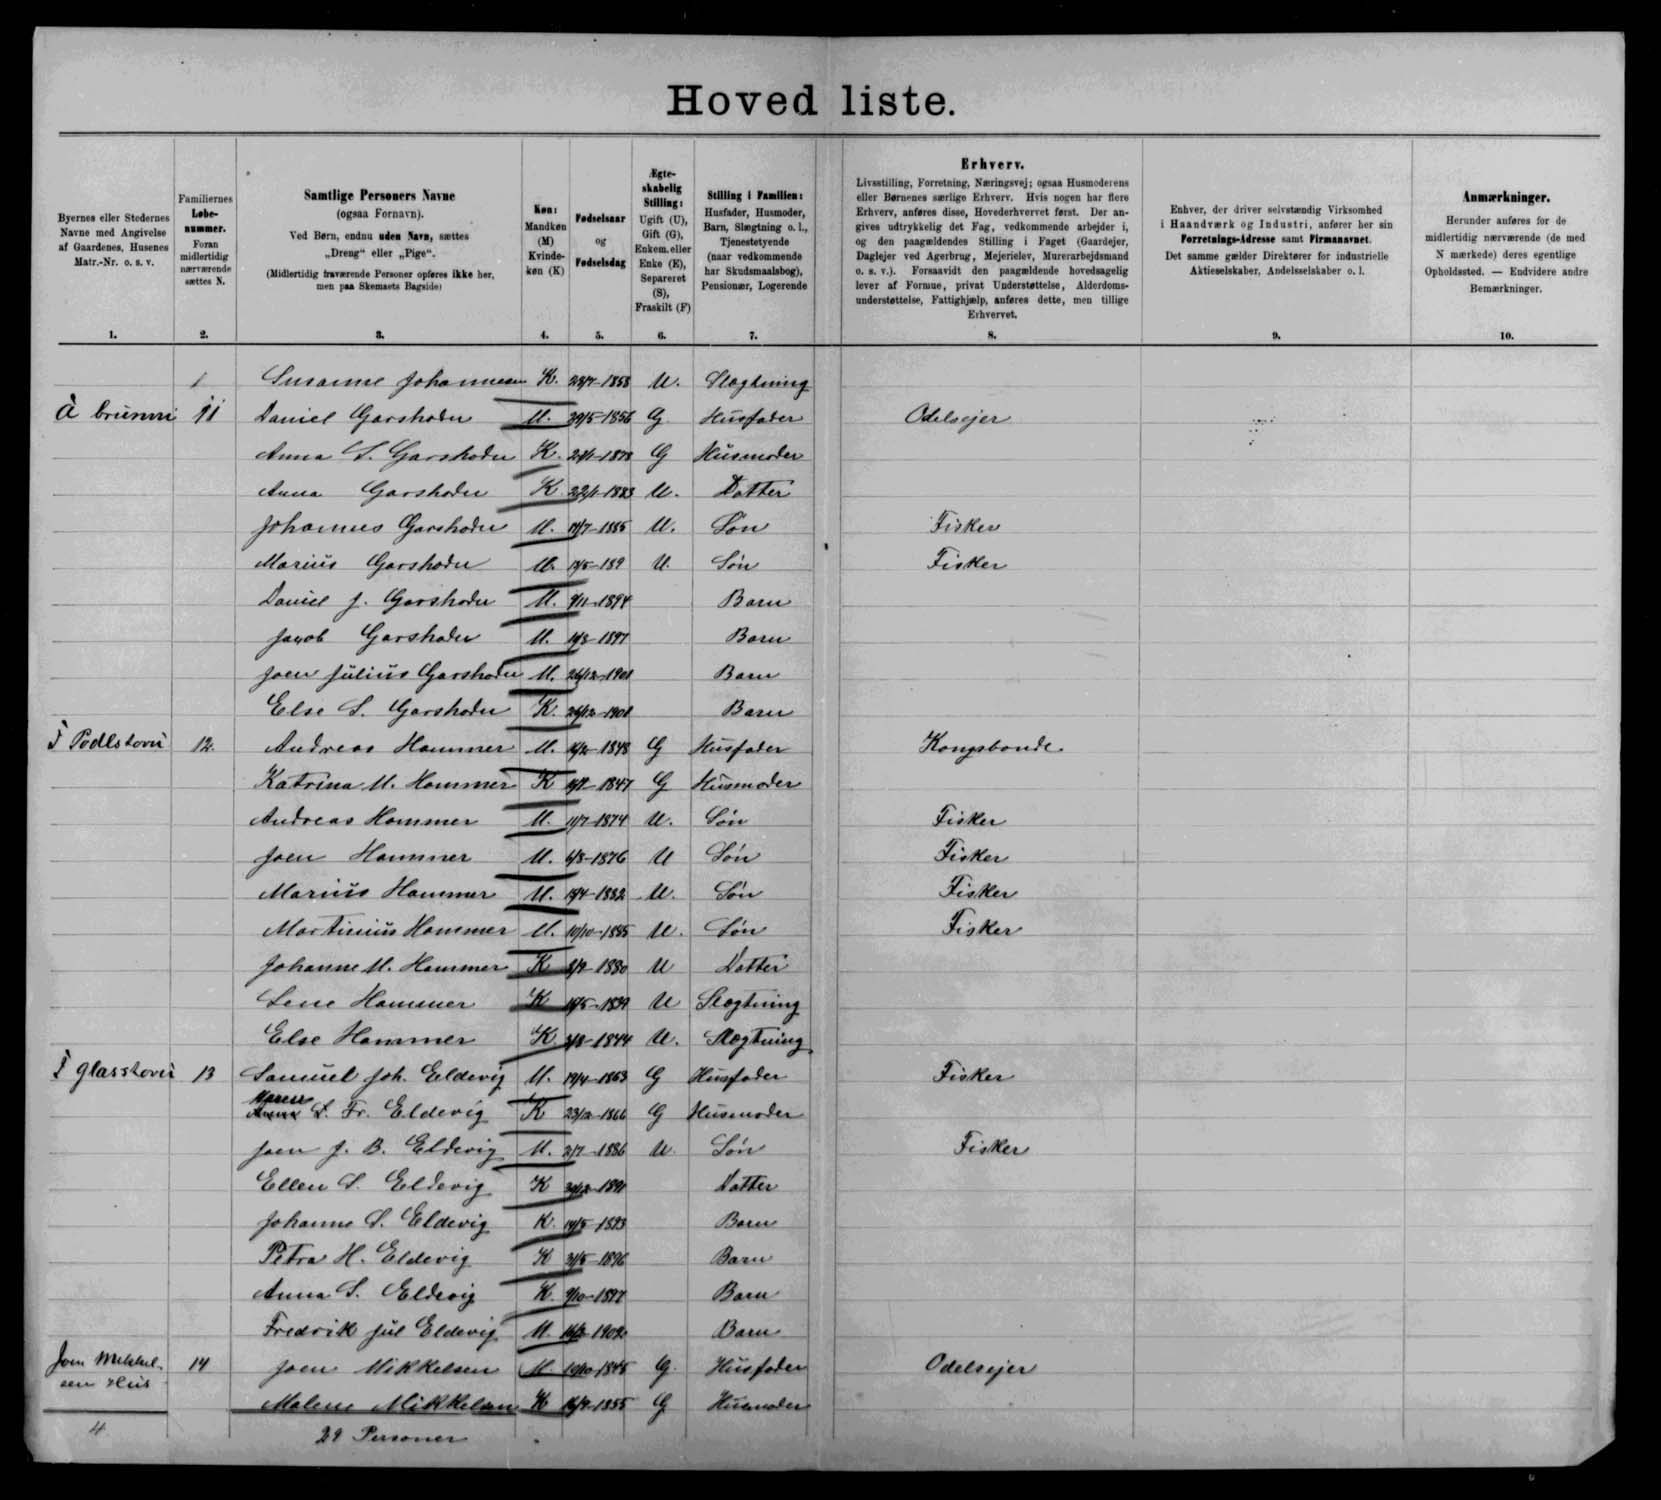 Hoved liste.
Byernes eller Stedernes
Navne med Angivelse
af Gaardenes, Husenes
Matr.-Nr. o. s. v.
1.
Familiernes
Løbe-
nummer.
Foran
midlertidig
nærværende
sættes N.
2.
Samtlige Personers Navne
(ogsaa Fornavn).
Ved Børn, endnu uden Navn, sættes
„Dreng“ eller „Pige“.
(Midlertidig fraværende Personer opføres ikke her,
men paa Skemaets Bagside)
3.
Køn:
Mandkøn
(M)
Kvinde-
køn (K)
4.
Fødselsaar
og
Fødselsdag
5.
Ægte-
skabelig
Stilling:
Ugift (U),
Gift (G),
Enkem. eller
Enke (E),
Separeret
(S),
Fraskilt (F)
6.
Stilling i Familien:
Husfader, Husmoder,
Barn, Slægtning o. l.,
Tjenestetyende
(naar vedkommende
har Skudsmaalsbog),
Pensionær, Logerende
7.
Erhverv.
Livsstilling, Forretning, Næringsvej; ogsaa Husmoderens
eller Børnenes særlige Erhverv. Hvis nogen har flere
Erhverv, anføres disse, Hovederhvervet først. Der an-
gives udtrykkelig det Fag, vedkommende arbejder i,
og den paagældendes Stilling i Faget (Gaardejer,
Daglejer ved Agerbrug, Mejerielev, Murerarbejdsmand
o. s. v.). Forsaavidt den paagældende hovedsagelig
lever af Formue, privat Understøttelse, Alderdoms-
understøttelse, Fattighjælp, anføres dette, men tillige
Erhvervet.
8.
Enhver, der driver selvstændig Virksomhed
i Haandværk og Industri, anfører her sin
Forretnings-Adresse samt Firmanavnet.
Det samme gælder Direktører for industrielle
Aktieselskaber, Andelsselskaber o. l.
9.
Anmærkninger.
Herunder anføres for de
midlertidig nærværende (de med
N mærkede) deres egentlige
Opholdssted. — Endvidere andre
Bemærkninger.
10.
Susanne Johannesen K. 1858 U. Slægtning
Á brunni 11 Daniel Garshoder M. 29/5-1856 G Husfader Odelsejer
Anna S. Garshoder K. 1878 G Husmoder
Anna Garshoder K 22/1-1883 U. Datter
Johannes Garshoder M. 1885 U. Søn Fisker
Marius Garshoder M. 189 U. Søn Fisker
Daniel J. Garshoder M. 9/11-1894 Barn
Jacob Garshoder M. 1897 Barn
Joen Julius Garshoder M. 26/12-1901 Barn
Else S. Garshoder K. 26/12-1901 Barn
12. Andreas Hammer M. 1848 G Husfader Kongsbonde.
Katrina M. Hammer K 1847 G Husmoder
Andreas Hammer M. 11/7-1874 U. Søn Fisker
Joen Hammer M. 6/8-1876 U Søn Fisker
Marius Hammer M. 1882 U. Søn Fisker
Martinius Hammer M. 10/10-1885 U. Søn Fisker
Johanne M. Hammer K 1880 U Datter
Lene Hammer K 1839 U Slægtning
Else Hammer K. 1844 U. Slægtning
Í glasstovu 13 Samuel Joh. Eldevig M. 19/4-1863 G Husfader Fisker
Maren
Anna S. Fr. Eldevig K 23/2-1866 G Husmoder
Joen J. B. Eldevig M. 2/7-1886 U. Søn Fisker
Ellen S. Eldevig K 1891 Datter
Johanne S. Eldevig K. 1893 Barn
Petra H. Eldevig K 31/5-1896 Barn
Anna S. Eldevig K. 9/10-1897 Barn
Fredrik Jul Eldevig M. 1902 Barn
Joen Mikkel-
sen Hus 14 Joen Mikkelsen M. 19/10-1845 G. Husfader Odelsejer
Malene Mikkelsen K 1855 G Husmoder
4 29 Personer